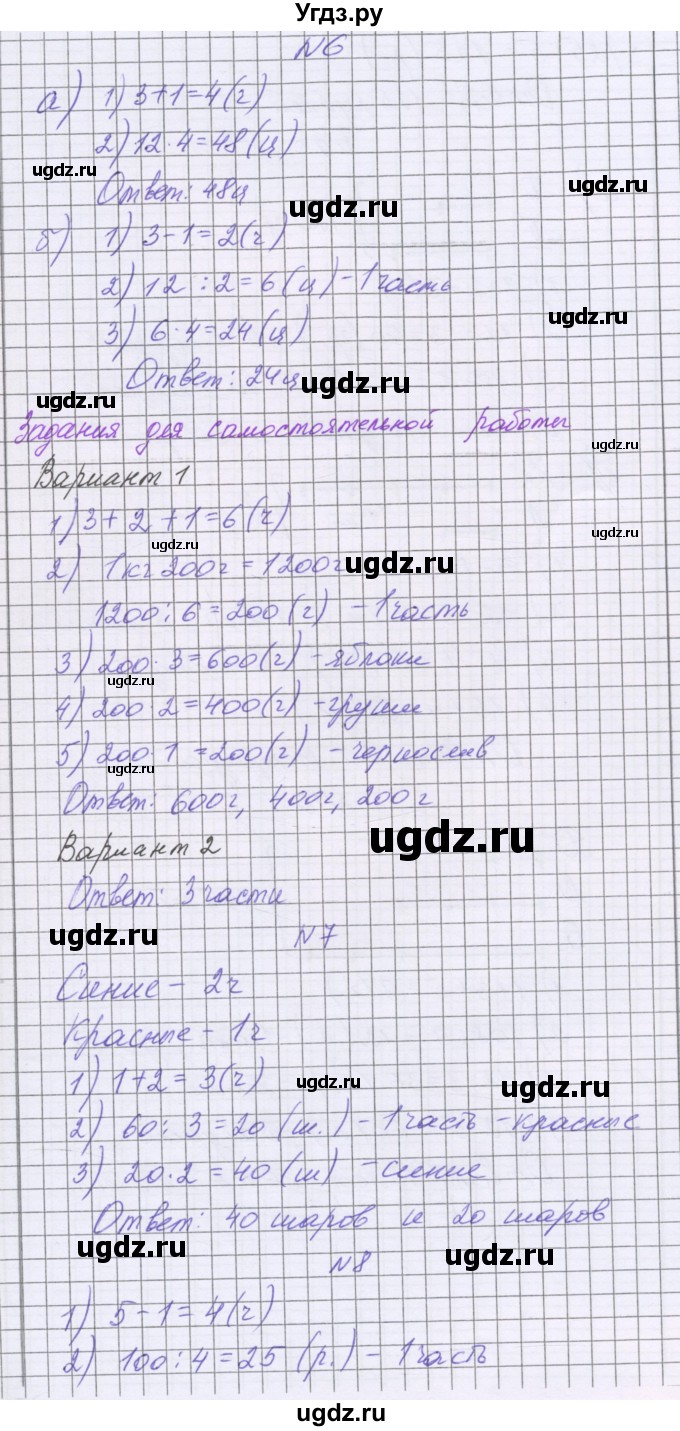 Угдз.ру
N6
а) 1) 3+1=4(ч)
2) 12·4=48(ц)
ugdz.ru
Ответ: 48ц
ugdz.ru
ugdz.ru
б) 1) 3-1=2(ч)
2) 12:2=6(ц)-1часть
ugdz.ru
3) 6·4=24(ц)
Ответ: 24ц
ugdz.ru
ugdz.ru
Задания для самостоятельной работы
ugdz.ru
Вариант 1
1) 3+2+1=6(ч)
ugdz.ru
ugdz.ru
2) 1кг 200г=1200г
ugdz.ru
1200:6=200(г) -1часть
3) 200·3=600(г)-яблоки
ugdz.ru
4) 200·2=400(г)-груши
5) 200·1=200(г) -чернослив
ugdz.ru
Ответ: 600г, 400г, 200г
ugdz.ru
Вариант 2
Ответ: 3части
ugdz.ru
N7
Синие- 2ч
Красные- 1ч
1) 1+2=3(ч)
ugdz.ru
ugdz.ru
2) 60:3=20(ш.)-1часть-красные
3) 20·2=40(ш) -синие
Ответ: 40 шаров и 20 шаров
ugdz.ru
ugdz.ru
N8
1) 5-1=4(ч)
2) 100:4=25(р.)-1часть
ugdz.ru